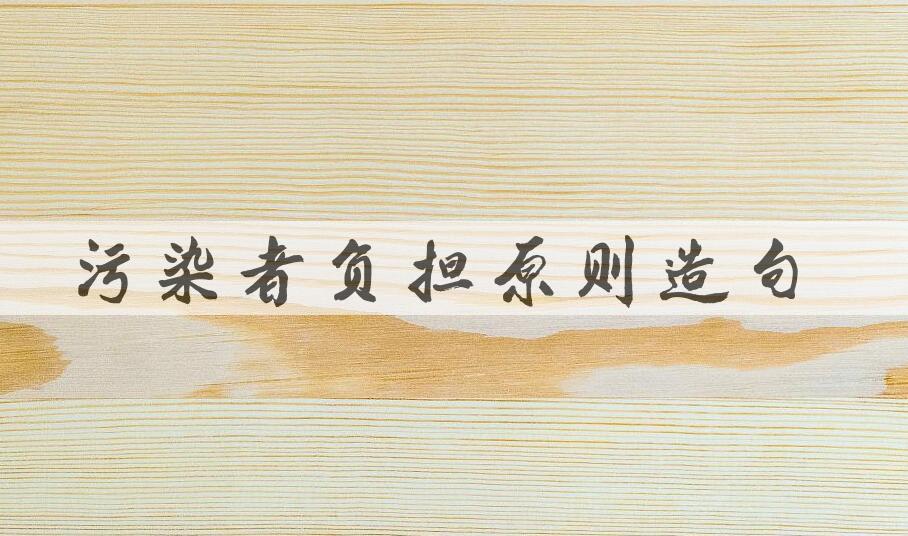 污染者负担原则造句